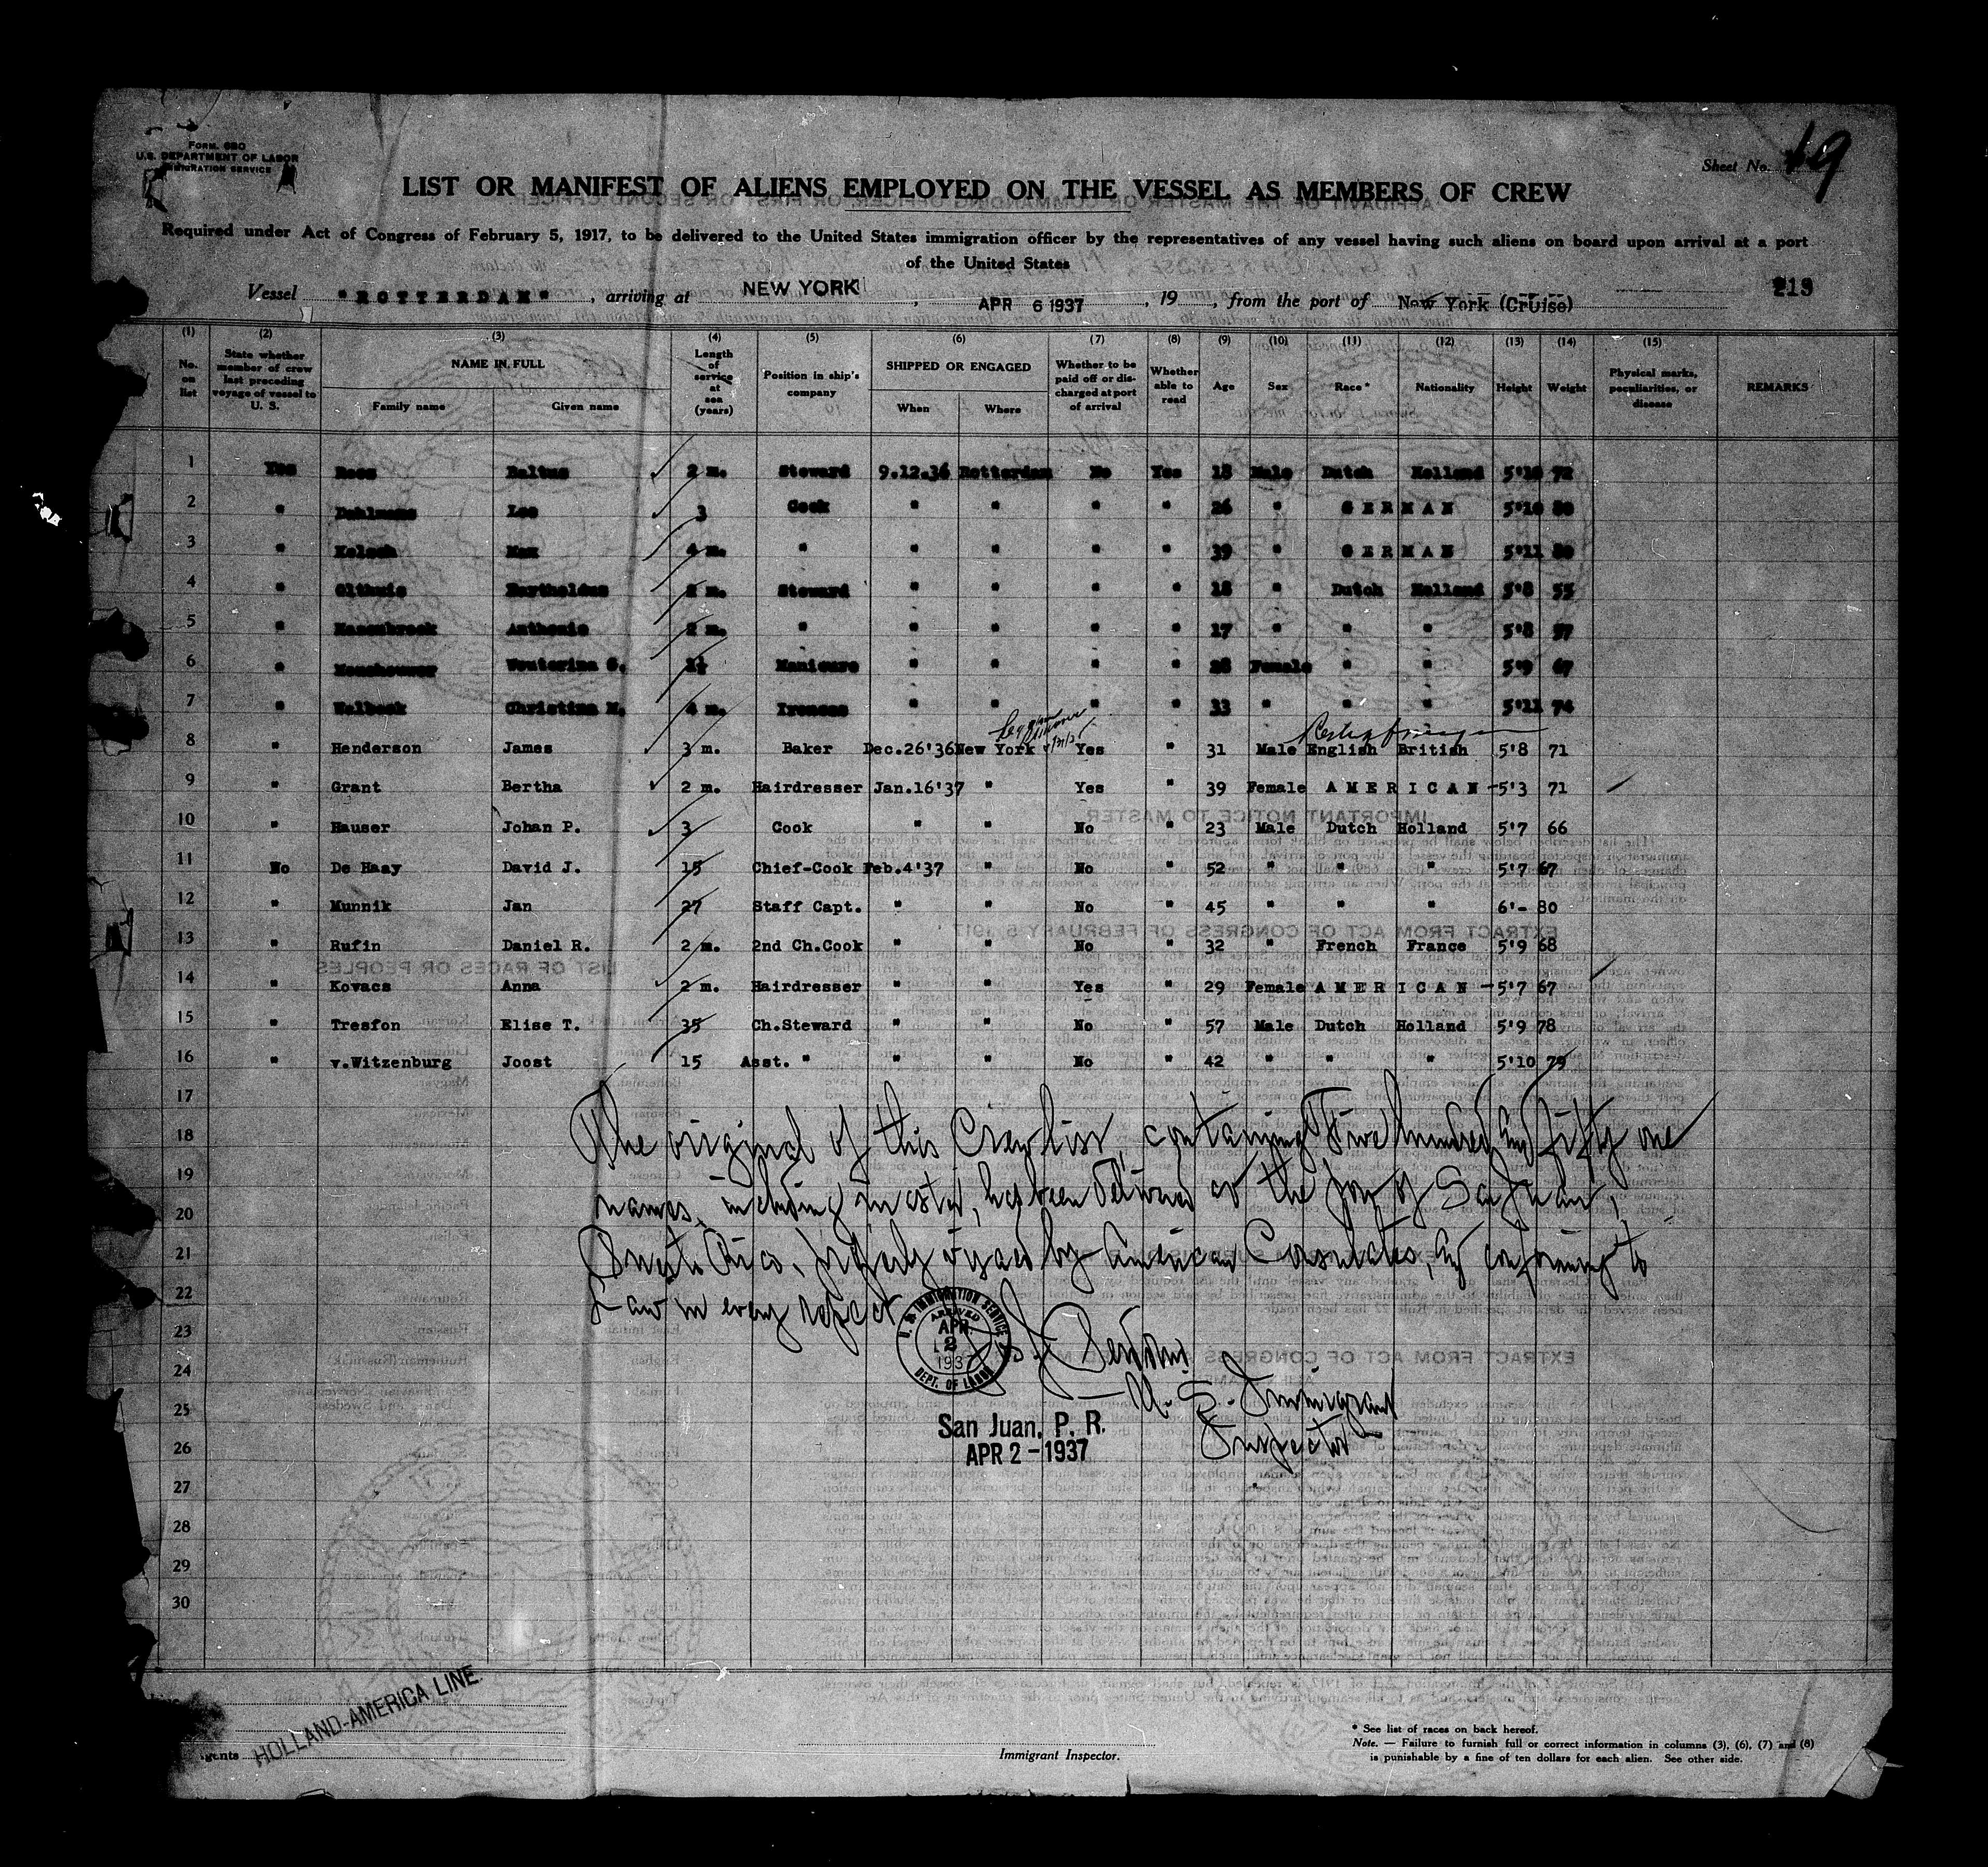 FORM. 680
U.S. DEPARTMENT OF LABOR
IMMIGRATION SERVICE
Sheet No. 19
LIST OR MANIFEST OF ALIENS EMPLOYED ON THE VESSEL AS MEMBERS OF CREW
Required under Act of Congress of February 5, 1917, to be delivered to the United States immigration officer by the representatives of any vessel having such aliens on board upon arrival at a port
of the United States
Vessel "ROTTERDAM", arriving at NEW YORK, APR 6 1937, 19 , from the port of New York (Cruise)
213
(1) (2) (3) (4) (5) (6) (7) (8) (9) (10) (11) (12) (13) (14) (15)
No. on list | State whether member of crew last preceding voyage of vessel to U. S. | NAME IN FULL | Family name | Given name | Length of service at sea (years) | Position in ship's company | SHIPPED OR ENGAGED | When | Where | Whether to be paid off or discharged at port of arrival | Whether able to read | Age | Sex | Race* | Nationality | Height | Weight | Physical marks, peculiarities, or disease | REMARKS
1 Yes Roos Baltus 2 m. Steward 9.12.36 Rotterdam No Yes 18 Male Dutch Holland 5'10 72
2 " Leo 3 Cook " " " " 26 " GERMAN 5'10 80
3 " Max 4 m. " " " " " 39 " GERMAN 5'11 80
4 " Olthuis Bartholdus 2 m. Steward " " " " 18 " Dutch Holland 5'8 55
5 " Anthonie 2 m. " " " " " 17 " " " 5'8 57
6 " Wouterina G. 1½ Manicure " " " " 28 Female " " 5'9 67
7 " Christina M. 4 m. " " " " 33 " " " 5'11 74
8 " Henderson James 3 m. Baker Dec.26'36 New York Yes " 31 Male English British 5'8 71
9 " Grant Bertha 2 m. Hairdresser Jan.16'37 " Yes " 39 Female AMERICAN - 5'3 71
10 " Hauser Johan P. 3 Cook " " No " 23 Male Dutch Holland 5'7 66
11 No De Haay David J. 15 Chief-Cook Feb.4'37 " No " 52 " " " 5'7 67
12 " Munnik Jan 27 Staff Capt. " " No " 45 " " " 6'- 80
13 " Rufin Daniel R. 2 m. 2nd Ch.Cook " " No " 32 " French France 5'9 68
14 " Kovacs Anna 2 m. Hairdresser " " Yes " 29 Female AMERICAN - 5'7 67
15 " Tresfon Elise T. 35 Ch.Steward " " No " 57 Male Dutch Holland 5'9 78
16 " v.Witzenburg Joost 15 Asst. " " " No " 42 " " " 5'10 79
17
18
19
20
21
22
23
24
25
26
27
28
29
30
The original of this Crew list, containing Five hundred and fifty one
names, including master, has been delivered at the port of San Juan,
Puerto Rico, properly visaed by American Consulates, and conforming to
Law in every respect
U. S. IMMIGRATION SERVICE
ARRIVED
APR 2 1937
DEPT. OF LABOR
U. S. Immigrant
Inspector
San Juan, P. R.
APR 2 - 1937
HOLLAND-AMERICA LINE.
Immigrant Inspector.
* See list of races on back hereof.
Note. — Failure to furnish full or correct information in columns (3), (6), (7) and (8)
is punishable by a fine of ten dollars for each alien. See other side.